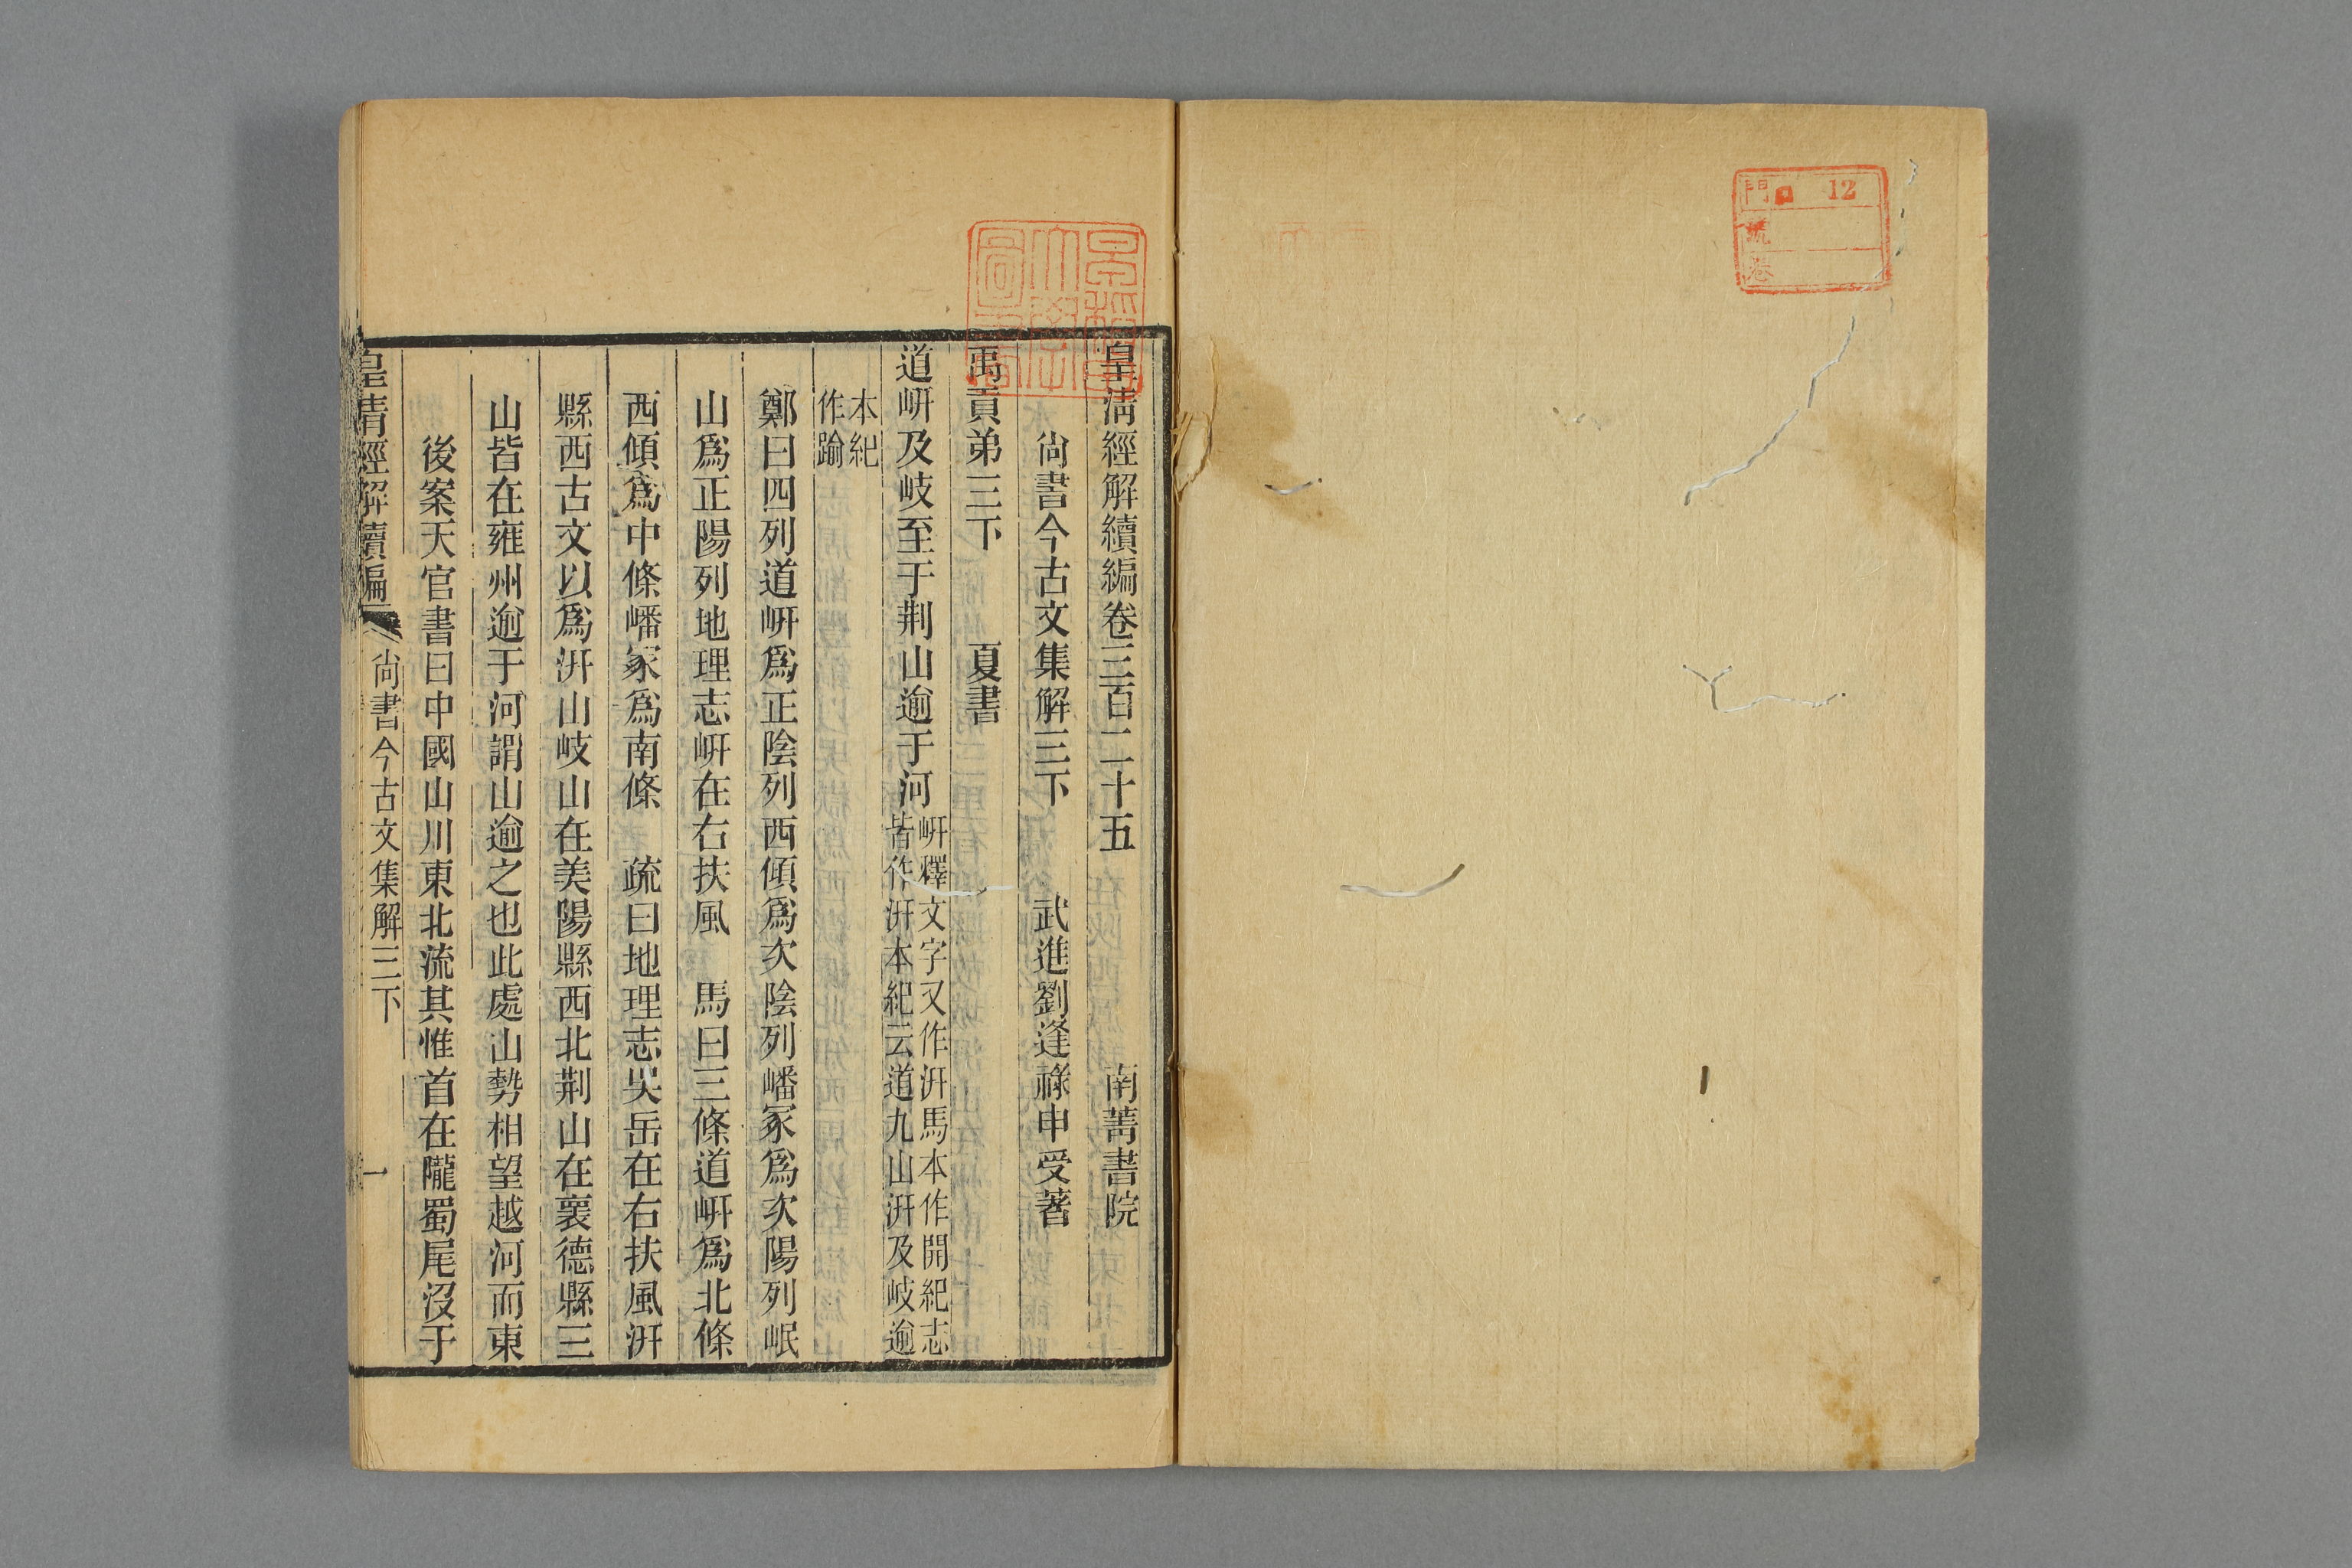 門 12
號
卷
皇清經解續編卷三百二十五 南菁書院
尙書今古文集解三下 武進劉逢祿申受著
禹貢弟三下 夏書
道岍及岐至于荆山逾于河 岍釋文字又作汧馬本作開紀志
皆作汧本紀云道九山汧及岐逾
本紀
作踰
鄭曰四列道岍爲正陰列西傾爲次陰列嶓冢爲次陽列岷
山爲正陽列地理志岍在右扶風 馬曰三條道岍爲北條
西傾爲中條嶓冢爲南條 疏曰地理志吳岳在右扶風汧
縣西古文以爲汧山岐山在美陽縣西北荆山在褱德縣三
山皆在雍州逾于河謂山逾之也此處山勢相望越河而東
後案天官書曰中國山川東北流其惟首在隴蜀尾沒于
皇清經解續編 尙書今古文集解三下 一